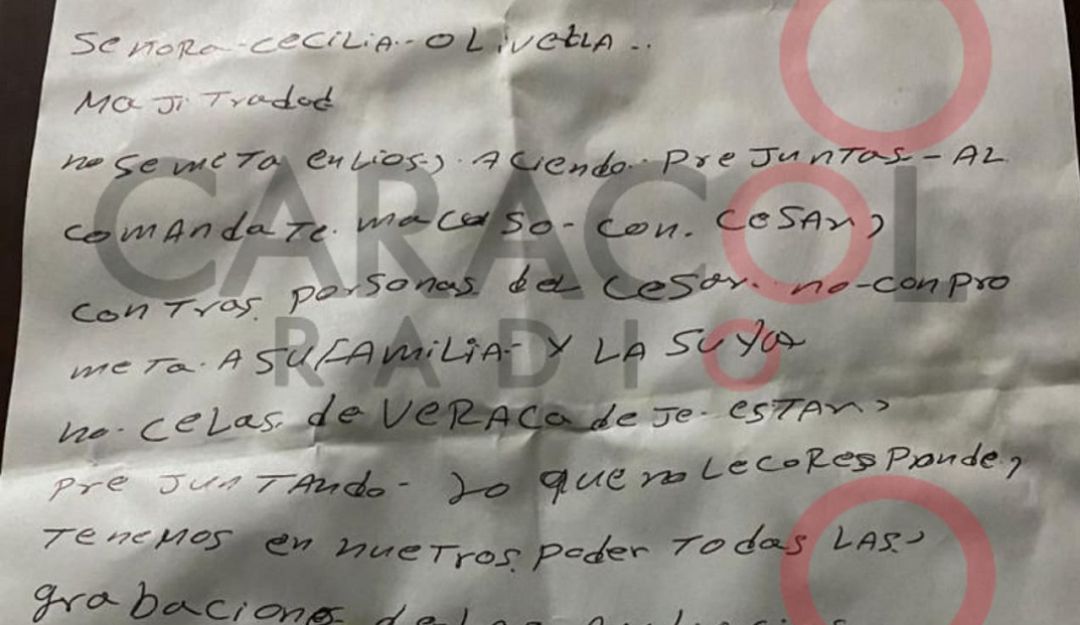 SeñoRa-CeCiLiA-OLivetLA..
MaJiTradod
no Se meTa en Lios, ACiendo PreJunTas-AL
ComAndaTe macaSo-Con. CeSAr,
ConTras personas del CeSar. no-ConPro
meTa. A SU fAmiLiA- Y LA SuYa
no. CeLas de VeRACa deJe-eSTAr,
PreJunTAndo- Lo que no Le coResponde,
Tenemos en nueTros. Poder Todas LAS,
grabaciones de Las
CARACOL
RADIO